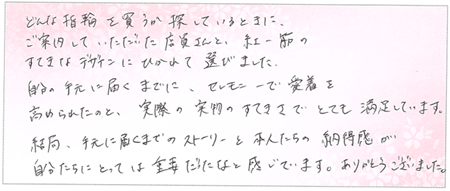 どんな指輪を買うか探しているときに、
ご案内していただいた店員さんと、紅一筋の
すてきなデザインにひかれて選びました。
自分の手元に届くまでに、セレモニーで愛着を
高められたのと、実際の実物のすてきさでとても満足しています。
結局、手元に届くまでのストーリーと本人たちの納得感が
自分たちにとっては重要だったなと感じています。ありがとうございました。